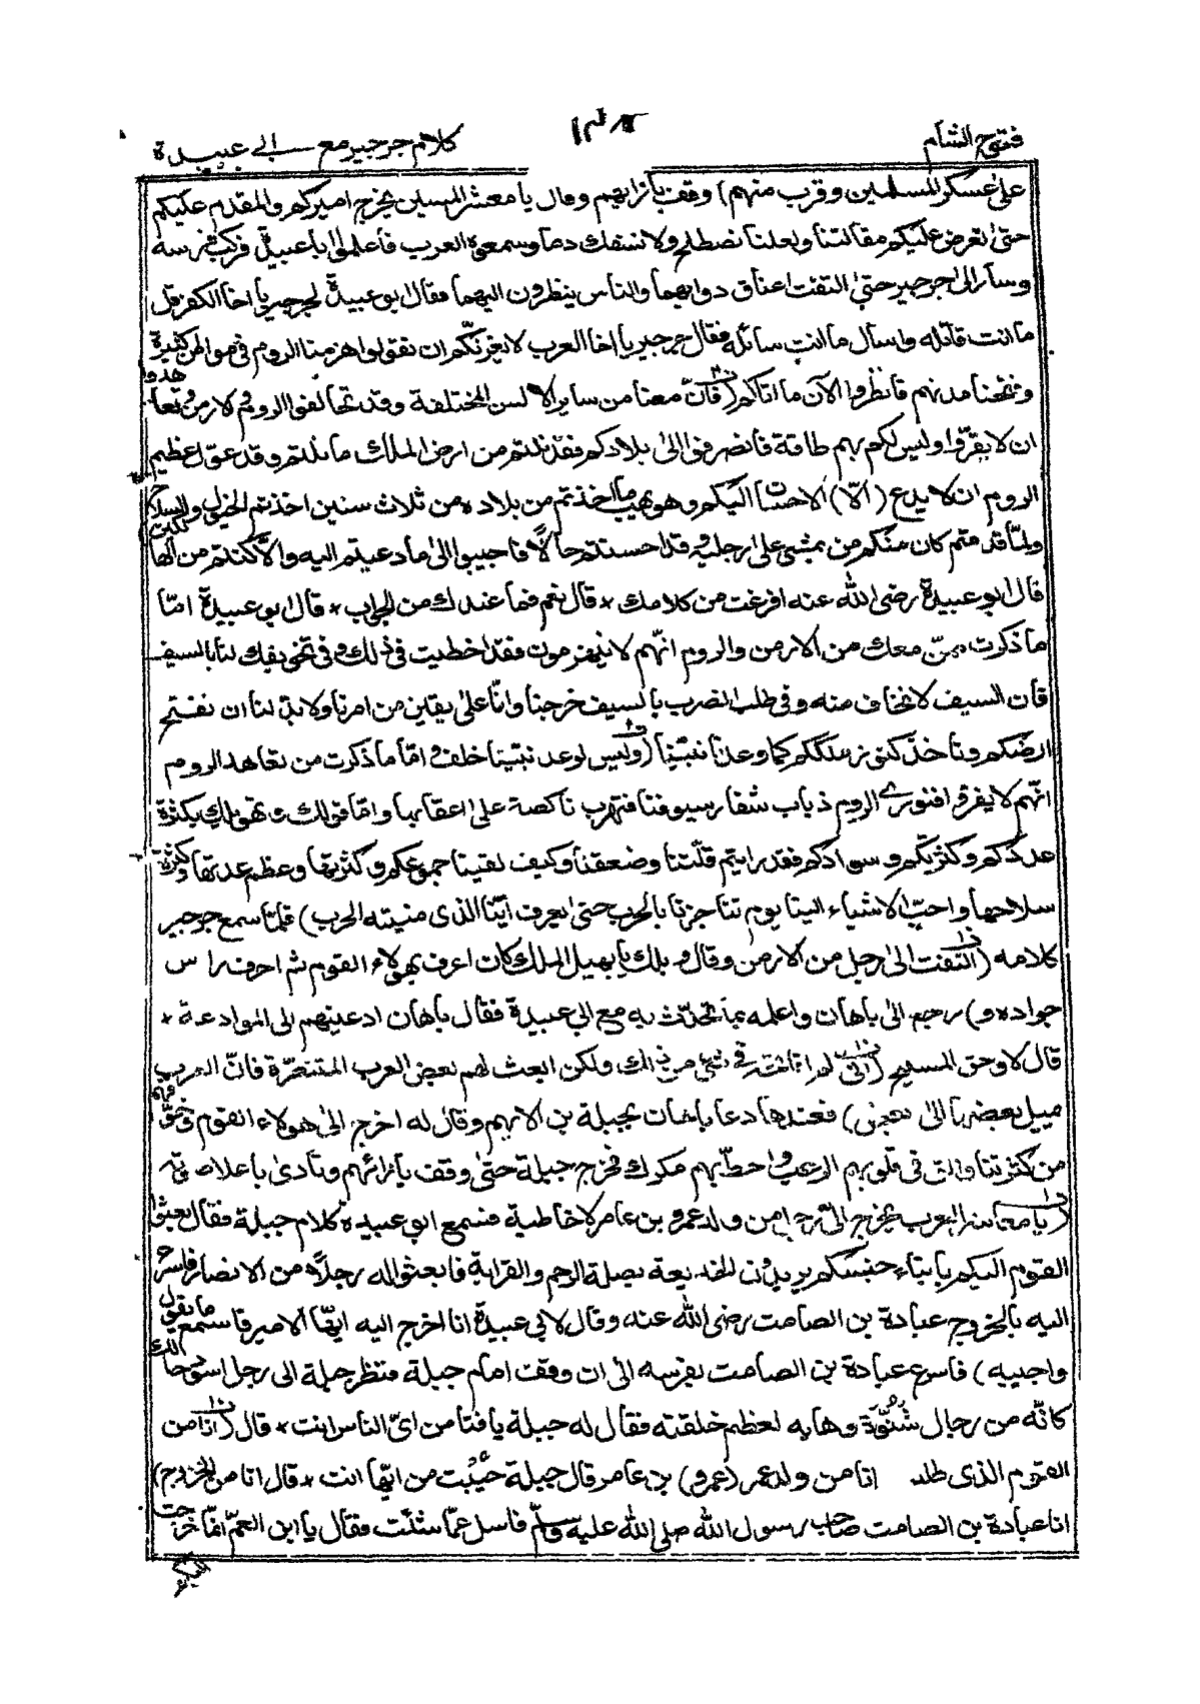 فتوح الشام
كلام جرجير مع ابي عبيدة
على عسكر المسلمين وقرب منهم) وقف بازايهم وقال يا معشر المسلمين يخرج اميركم والمقدم عليكم
حتى نعرض عليكم مقالتنا ولعلنا نصطلح ولا نسفك دما وسمعوه العرب فأعلموا ابا عبيدة فركب فرسه
وسار الى جرجير حتى التقت اعناق دوابهما والناس ينظرون اليهما فقال ابو عبيدة لجرجير يا اخا الكفر قل
ما انت قائله واسأل ما انت سائله فقال جرجير يا اخا العرب لا يغرنّكم ان تقولوا هزمنا الروم في مواطن كثيرة
وفتحنا مدنهم فانظروا الآن ما اتاكم (فانّ معنا من ساير الالسن المختلفة وقد تحالفوا الروم والارمن وتعاهدوا
ان لا يفرّوا وليس لكم بهم طاقة فانصرفوا الى بلادكم فقد نلتم من ارض الملك ما نلتم وقد عوّل عظيم
الروم ان لا يدع (الّا) الاحسان اليكم وهو يهب ما اخذتم من بلاده من ثلاث سنين اخذتم الخيل والسلاح
ولمّا قدمتم كان منكم من يمشي على رجليه وقد احسنتم حالًا فاجيبوا الى ما دعيتم اليه والّا كنتم من الهالكين
قال ابو عبيدة رضى الله عنه افرغت من كلامك * قال نعم فما عندك من الجواب * قال ابو عبيدة امّا
ما ذكرت ممنّ معك من الارمن والروم انّهم لا ينهزمون فقد اخطيت في ذلك وفي تخويفك لنا بالسيف
فان السيف لا نخاف منه وفي طلب الضرب بالسيف خرجنا وانّا على يقين من امرنا ولا بدّ لنا ان نفتح
ارضكم وناخذ كنوز ملككم كما وعدنا نبيّنا (وليس لوعد نبيّنا خلف) وامّا ما ذكرت من تعاهد الروم
انّهم لا يفرّوا فنوري الروم ذباب شفار سيوفنا فتهرب ناكصة على اعقابها وامّا قولك وتهويلك بكثرة
عددكم وكثرتكم وسوادكم فقد رايتم قلّتنا وضعفنا وكيف لقينا جموعكم وكثرتها وعظم عدتها وكثرة
سلاحها واحبّ الاشياء الينا يوم تناجزنا بالحرب حتى يعرف ايّنا الذى منيته الحرب) فلمّا سمع جرجير
كلامه (التفت الى رجل من الارمن وقال ويلك يا بهيل الملك كان اعرف بهولاء القوم ثم احرف راس
جواده و) رجع الى باهان واعلمه بما تحدّث به مع ابي عبيدة فقال باهان ادعيتهم الى الموادعة *
قال لا وحق المسيح (انّى لم افاتحه في شئ من ذلك ولكن ابعث لهم بعض العرب المتنصّرة فانّ العرب
ميل بعضها الى بعض) فعندها دعا باهان بجبلة بن الايهم وقال له اخرج الى هولاء القوم وخوّفهم
من كثرتنا والق في قلوبهم الرعب واحط بهم مكرك فخرج جبلة حتى وقف بازائهم ونادى باعلا صوته
(يا معاشر العرب يخرج الىّ رجل من ولد عمرو بن عامر لاخاطبه فسمع ابو عبيدة كلام جبلة فقال بعثوا
القوم اليكم بابناء جنسكم يريدون الخديعة بصلة الرحم والقرابة فابعثوا له رجلًا من الانصار فاسرع
اليه بالخروج عبادة بن الصامت رضى الله عنه وقال لابي عبيدة انا اخرج اليه ايّها الامير فاسمع ما يقول
واجيبه) فاسرع عبادة بن الصامت بفرسه الى ان وقف امام جبلة فنظر جبلة الى رجل اسود حالك
كانّه من رجال شنوّة وهابه لعظم خلقته فقال له جبلة يا فتا من ايّ الناس انت * قال (انا من
القوم الذى طلبت انا من ولد عمر (عمرو) بن عامر قال جبلة حيّيت من ايّها انت * قال انا من الخزرج)
انا عبادة بن الصامت صاحب رسول الله صلى الله عليه وسلّم فاسل عمّا شئت فقال يا ابن العمّ انّما خرجت
اليكم